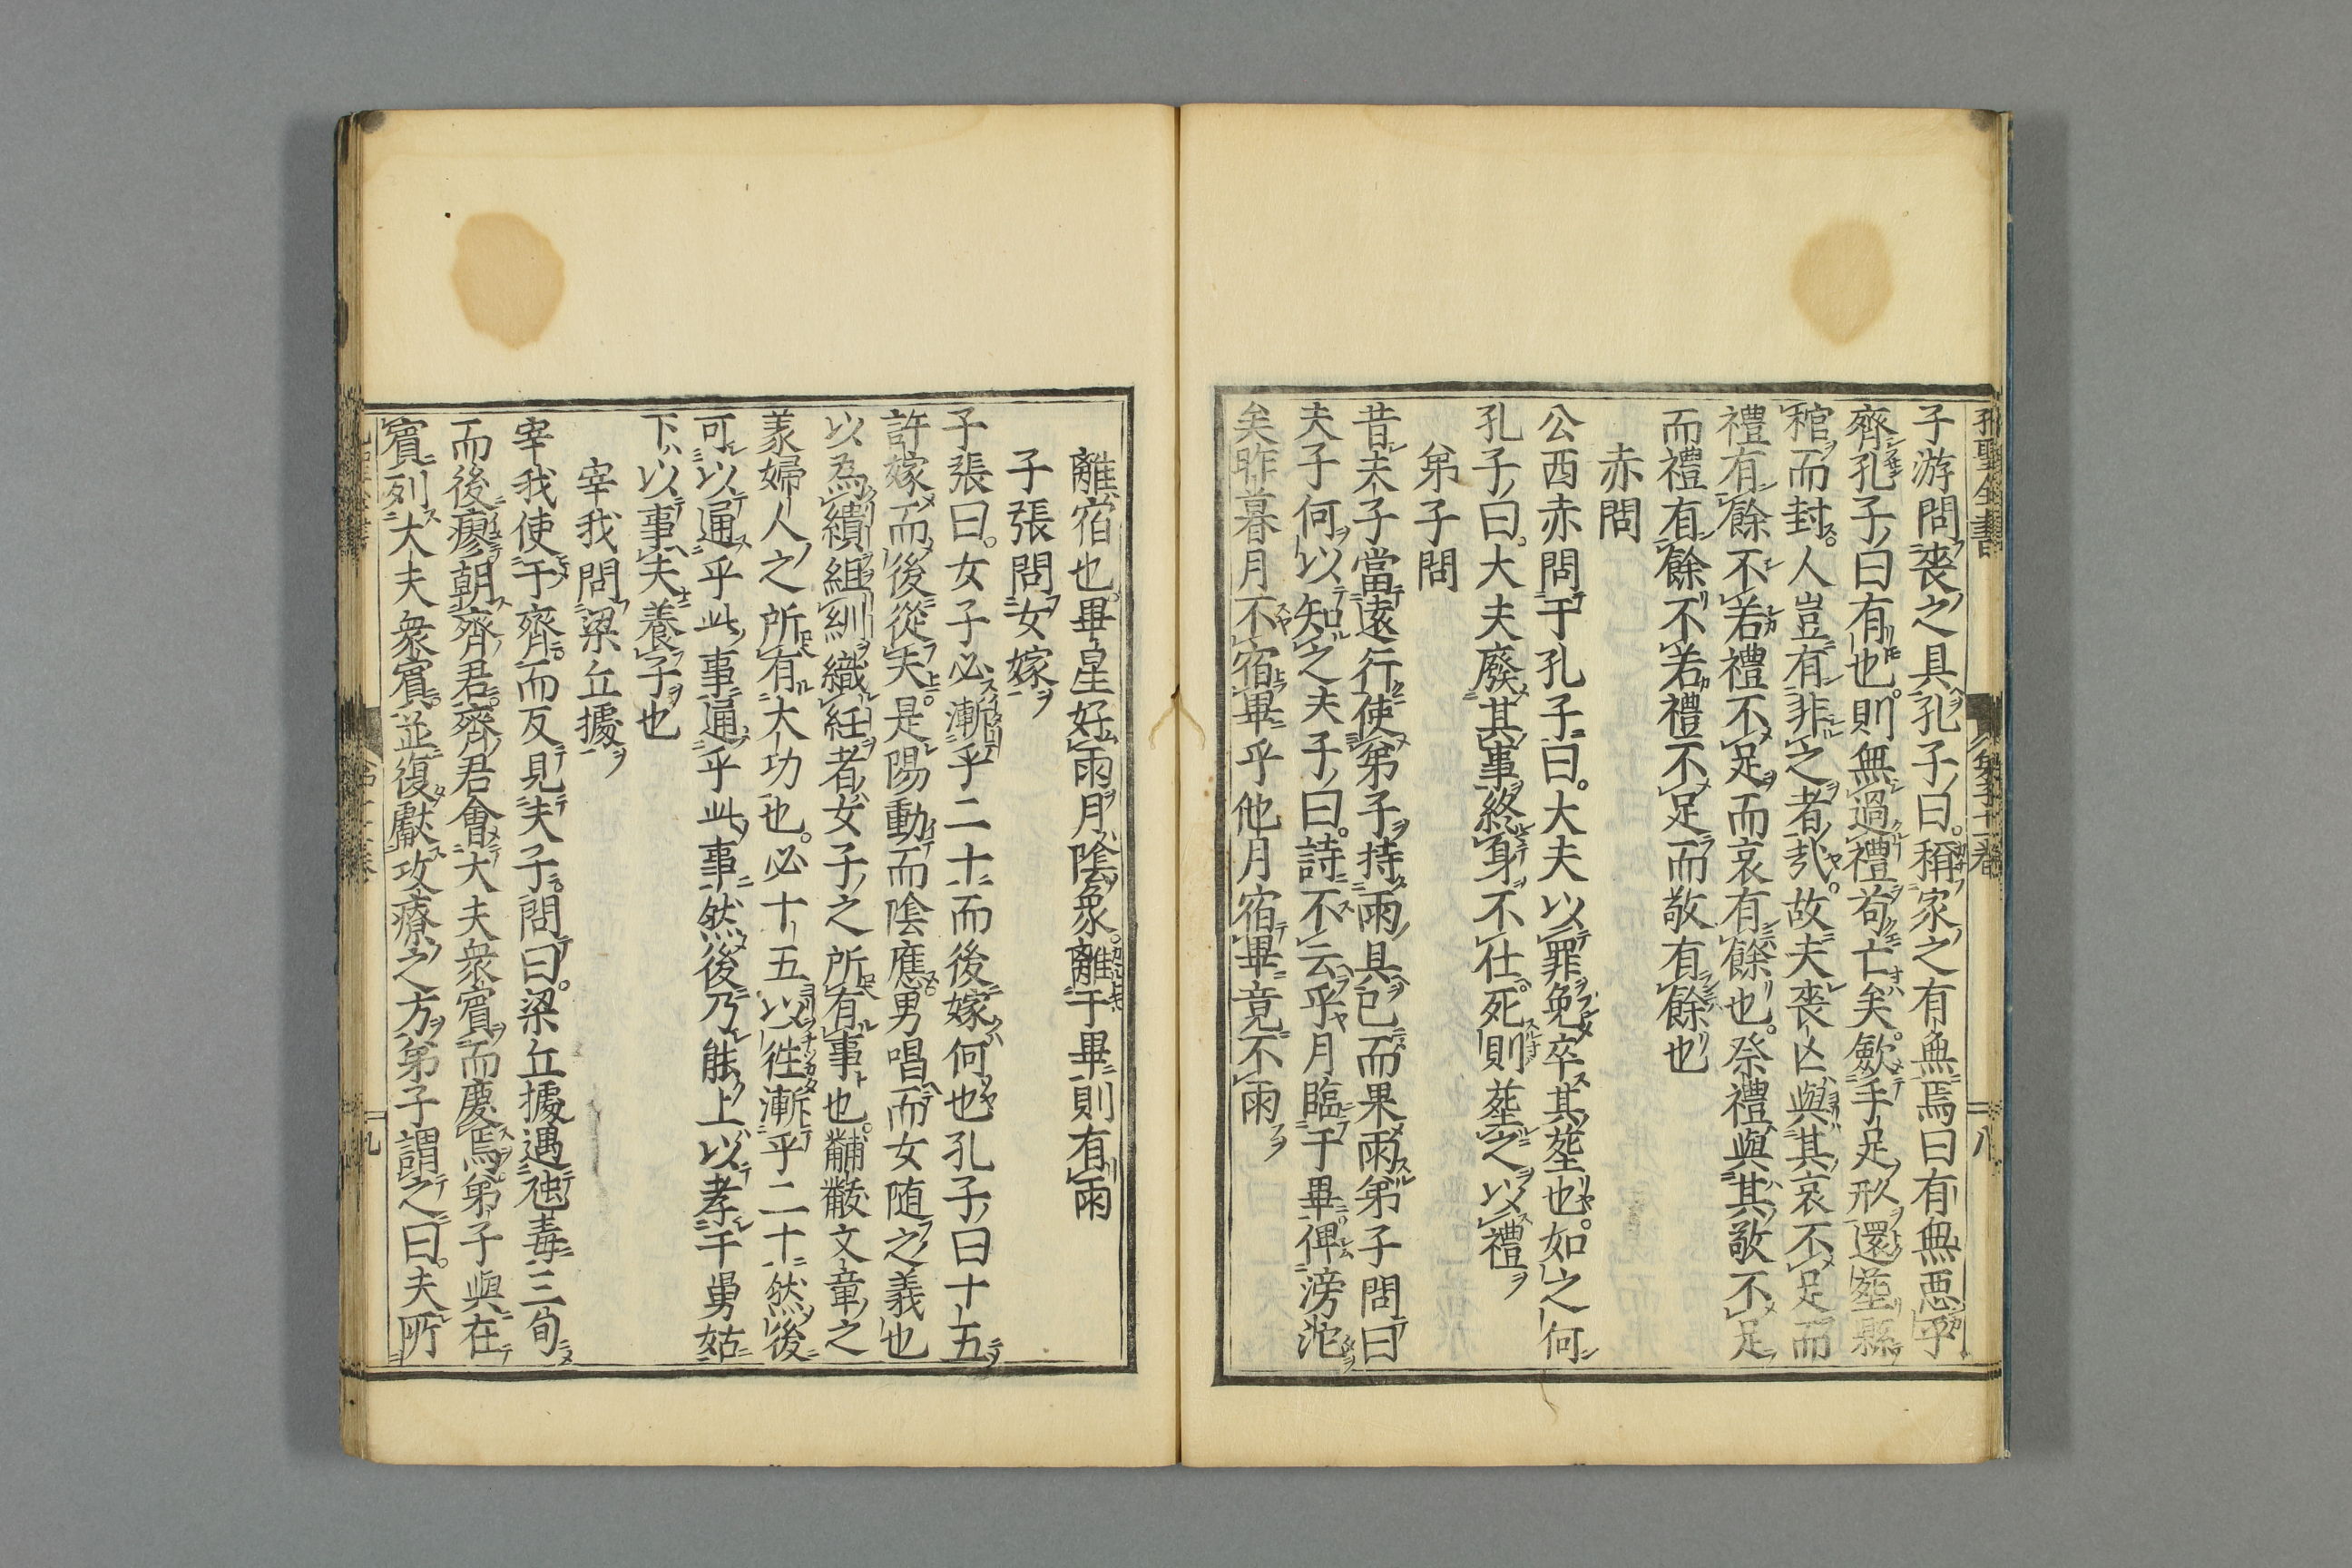 子游問喪之具孔子曰稱家之有無焉曰有無惡乎
齊孔子曰有也則無過禮苟亡矣歛手足形還葬縣
棺而封人豈有非之者哉故夫喪亡與其哀不足而
禮有餘不若禮不足而哀有餘也祭禮與其敬不足
而禮有餘不若禮不足而敬有餘也
赤問
公西赤問于孔子曰大夫以罪免卒其塟也如之何
孔子曰大夫廢其事終身不仕死則塟之以禮
弟子問
昔夫子當遠行使弟子持雨具已而果雨弟子問曰
夫子何以知之夫子曰詩不云乎月臨于畢俾滂沱
矣昨暮月不宿畢乎他月宿畢竟不雨
離宿也畢星好雨月陰象離于畢則有雨
子張問女嫁
子張曰女子必漸乎二十而後嫁何也孔子曰十五
許嫁而後從夫是陽動而陰應男唱而女随之義也
以為績組紃織紝者女子之所有事也黼黻文章之
美婦人之所有大功也必十五以往漸乎二十然後
可以通乎此事通乎此事然後乃能上以孝于舅姑
下以事夫養子也
宰我問梁丘據
宰我使于齊而反見夫子問曰梁丘據遇虺毒三旬
而後瘳朝齊君齊君會大夫衆賓而慶焉弟子與在
賓列大夫衆賓並復獻攻療之方弟子謂之曰夫所
八
九